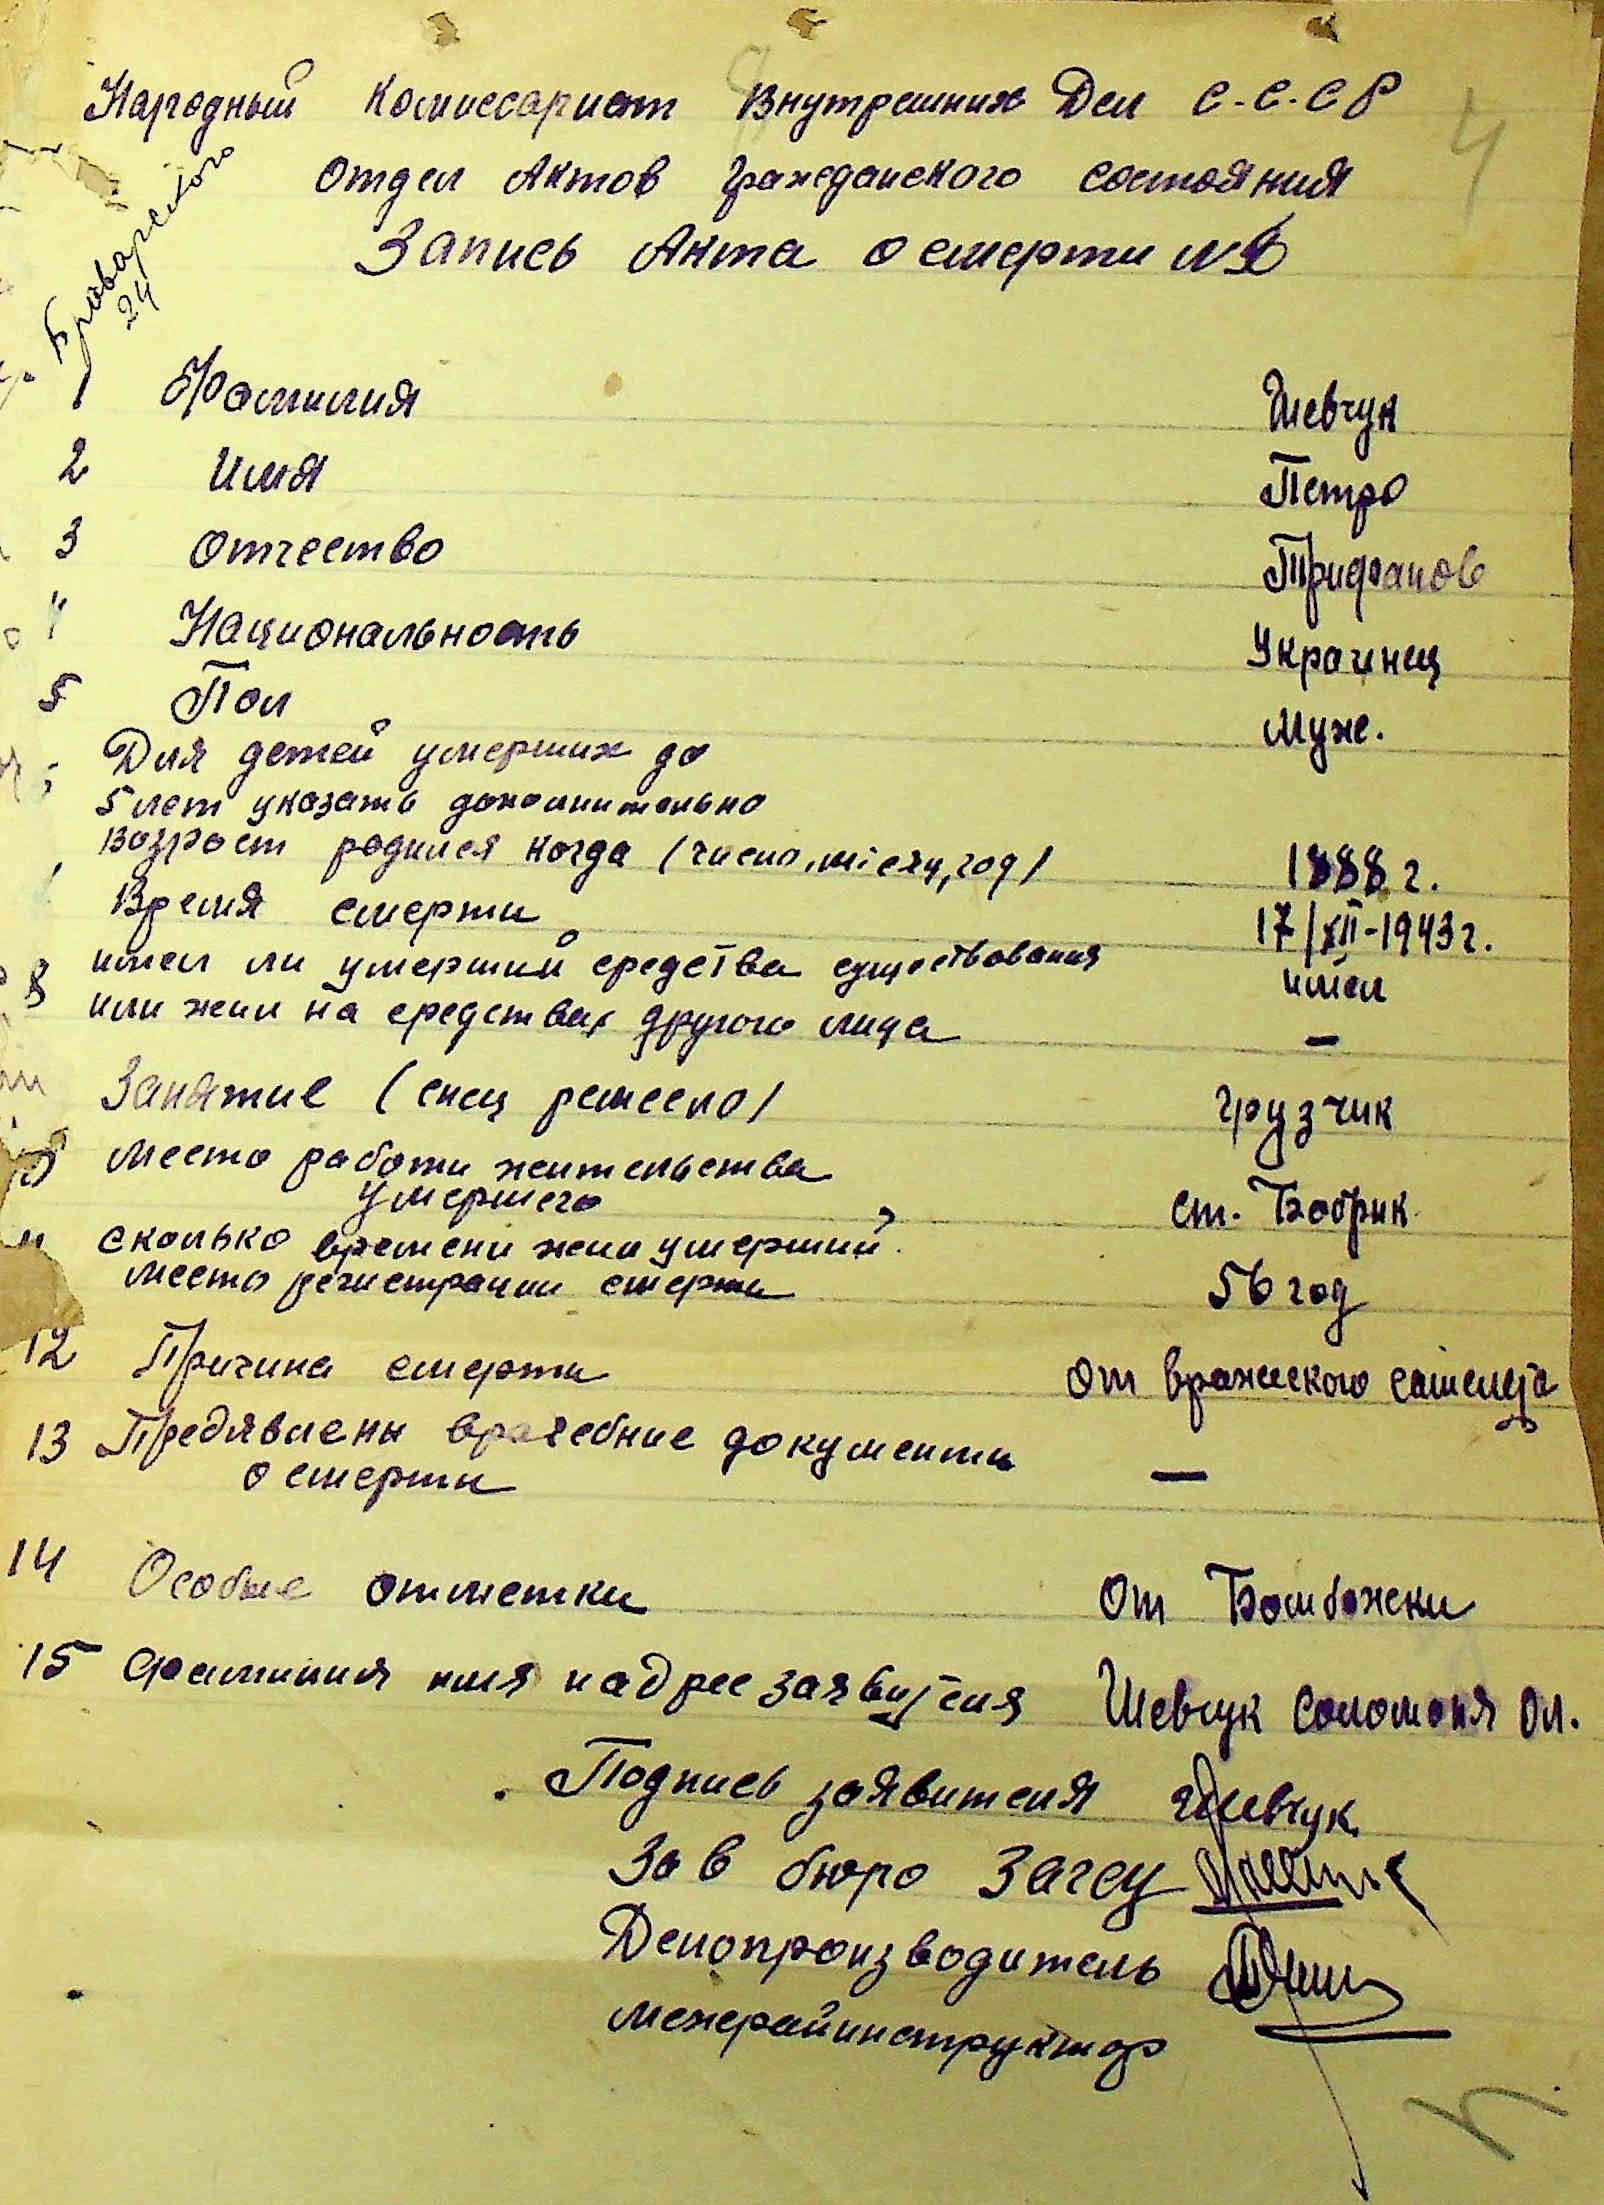 Народный Комиссариат Внутренних Дел С.С.С.Р
4
Отдел Актов гражданского состояния
Запись Акта о смерти №
Броварского
24
1 Фамилия Шевчук
2 Имя Петро
3 Отчество Трифанов
4 Национальность Украинец
5 Пол Муж.
Для детей умерших до
5 лет указать дополнительно
Возраст родился когда (число, місяц, год) 1888 г.
Время смерти 17/XII-1943 г.
8 имел ли умерший средства существования имел
или жил на средствах другого лица —
Занятие (спец ремесло) грузчик
Место работи жительства
умершего ст. Бобрик
Сколько времени жил умерший.
Место регистрации смерти 56 год
12 Причина смерти От вражеского
13 Предявлены врачебние документи
о смерти —
14 Особые отметки От Бомбожки
15 Фамилия имя и адрес Шевчук Соломония Ол.
Подпись заявителя Шевчук
Зав бюро Загсу
Делопроизводитель
межрайинструктор